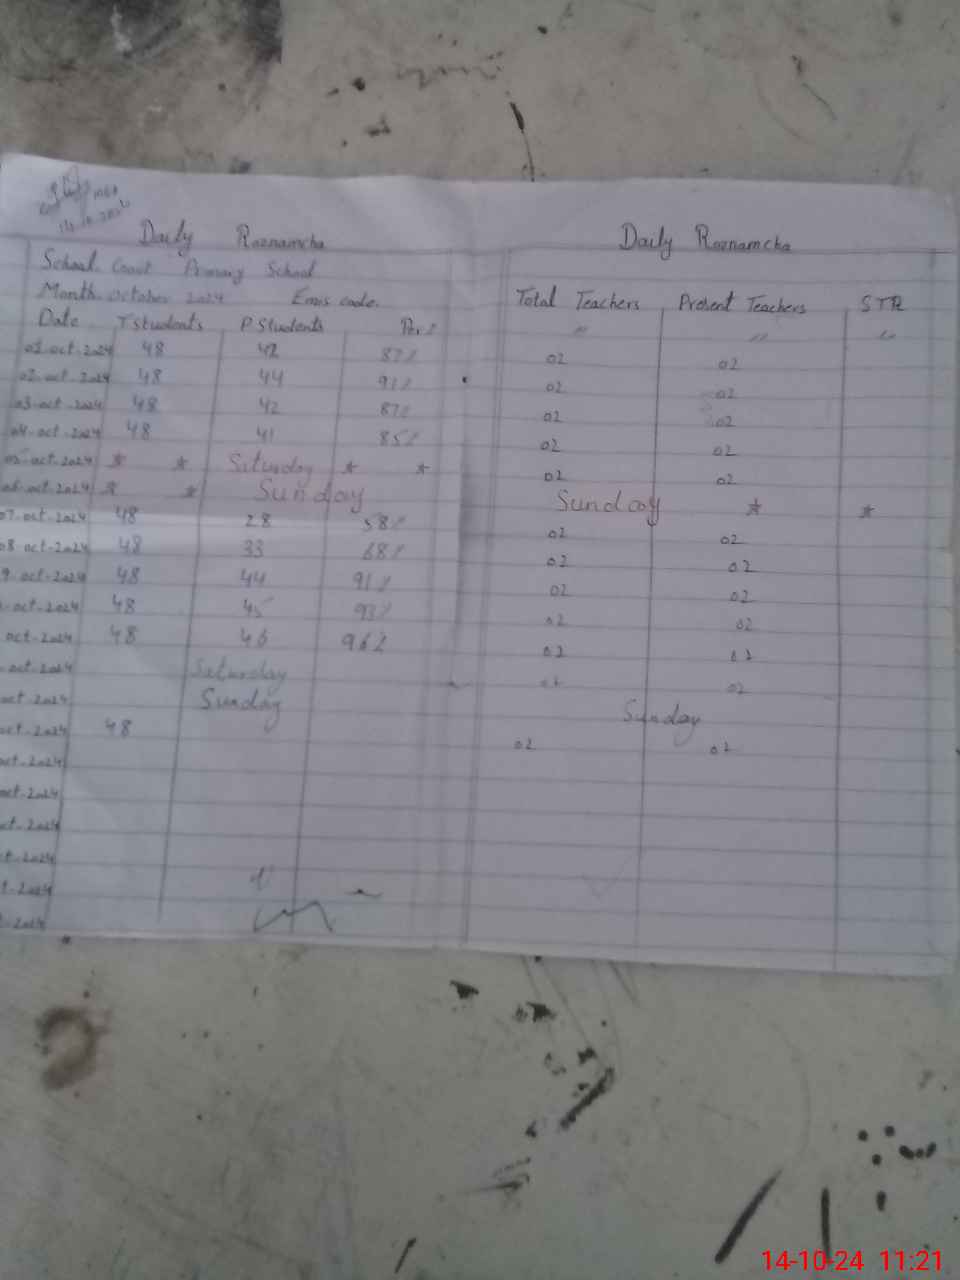 14.10.2024
Daily Roznamcha
School. Govt Primary School
Month. October 2024 Emis code.
Date T Students P Students Per %
01-oct-2024 48 42 87%
02-oct-2024 48 44 91%
03-oct-2024 48 42 87%
04-oct-2024 48 41 85%
05-oct-2024 * * Saturday * *
06-oct-2024 * * Sunday
07-oct-2024 48 28 58%
08-oct-2024 48 33 68%
9-oct-2024 48 44 91%
-oct-2024 48 45 93%
oct-2024 48 46 96%
-oct-2024 Saturday
oct-2024 Sunday
oct-2024 48
oct-2024
oct-2024
ct-2024
ct-2024
t-2024
-2024
Daily Roznamcha
Total Teachers Present Teachers STR
" " "
02 02
02 02
02 02
02 02
02 02
Sunday * *
02 02
02 02
02 02
02 02
02 02
02 02
Sunday
02 02
14-10-24 11:21